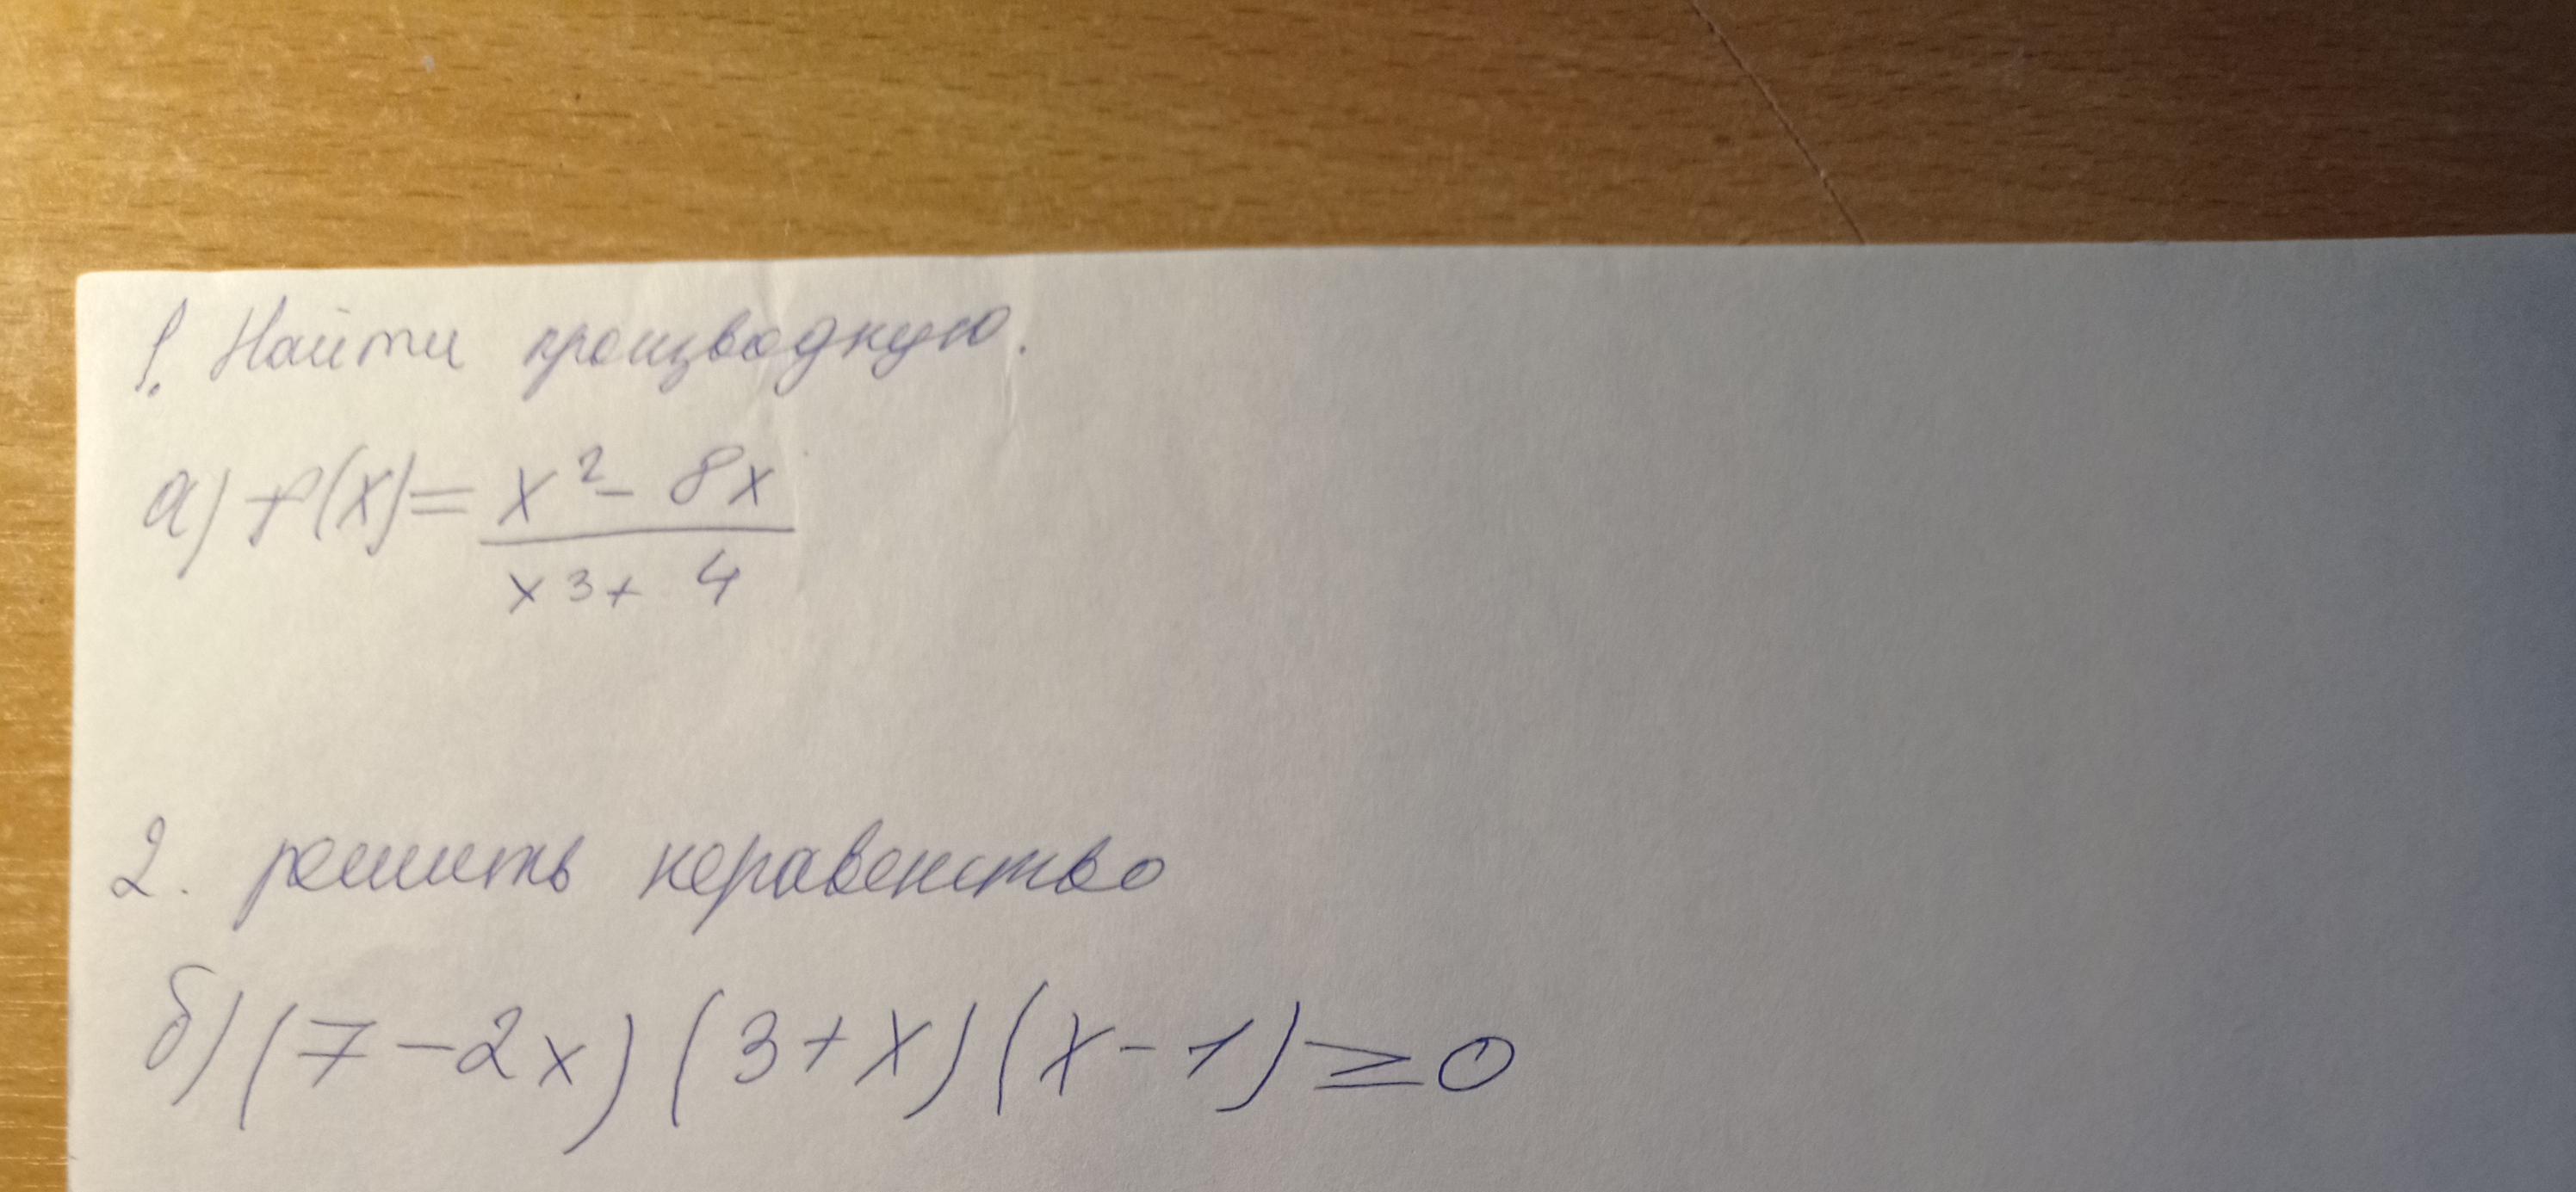 1. Найти производную.
а) f(x) = x² - 8x
x3+ 4
2. решить неравенство
б) (7-2x) (3+x) (x-1) ≥ 0